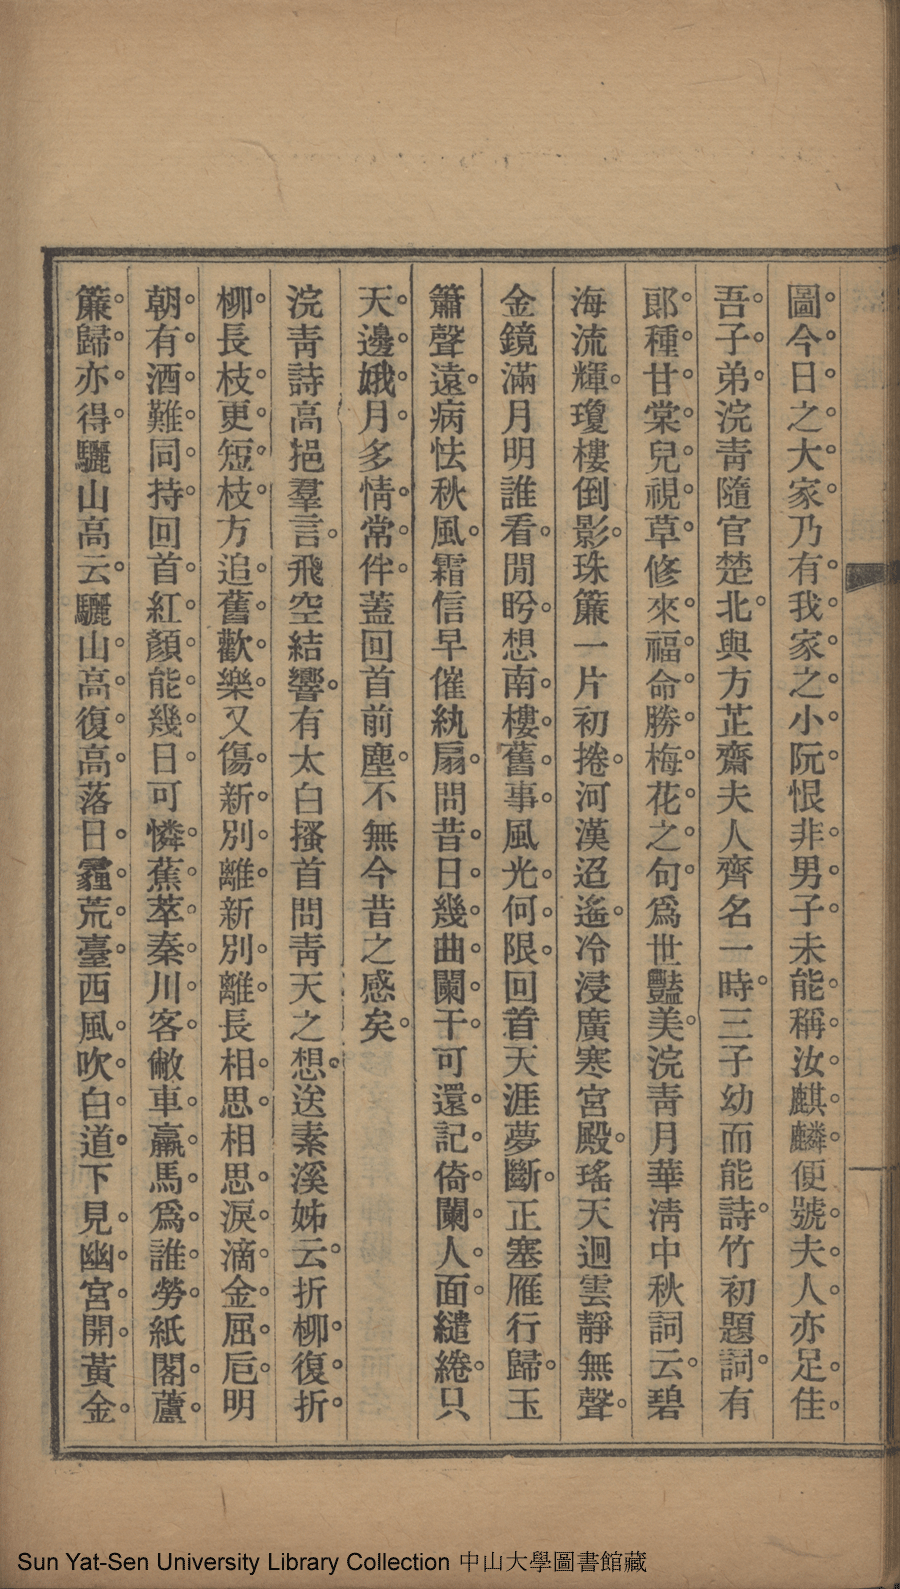 圖今日之大家乃有我家之小阮恨非男子未能稱汝麒麟便號夫人亦足佳
吾子弟浣靑隨官楚北與方芷齋夫人齊名一時三子幼而能詩竹初題詞有
郎種甘棠兒視草修來福命勝梅花之句爲世豔美浣靑月華淸中秋詞云碧
海流輝瓊樓倒影珠簾一片初捲河漢迢遙冷浸廣寒宮殿瑤天迥雲靜無聲
金鏡滿月明誰看閒盻想南樓舊事風光何限回首天涯夢斷正塞雁行歸玉
簫聲遠病怯秋風霜信早催紈扇問昔日幾曲闌干可還記倚闌人面繾綣只
天邊娥月多情常伴蓋回首前塵不無今昔之感矣
浣靑詩高挹羣言飛空結響有太白搔首問靑天之想送素溪姊云折柳復折
柳長枝更短枝方追舊歡樂又傷新別離新別離長相思相思淚滴金屈卮明
朝有酒難同持回首紅顏能幾日可憐蕉萃秦川客敝車羸馬爲誰勞紙閣蘆
簾歸亦得驪山高云驪山高復高落日霾荒臺西風吹白道下見幽宮開黃金
Sun Yat-Sen University Library Collection 中山大學圖書館藏